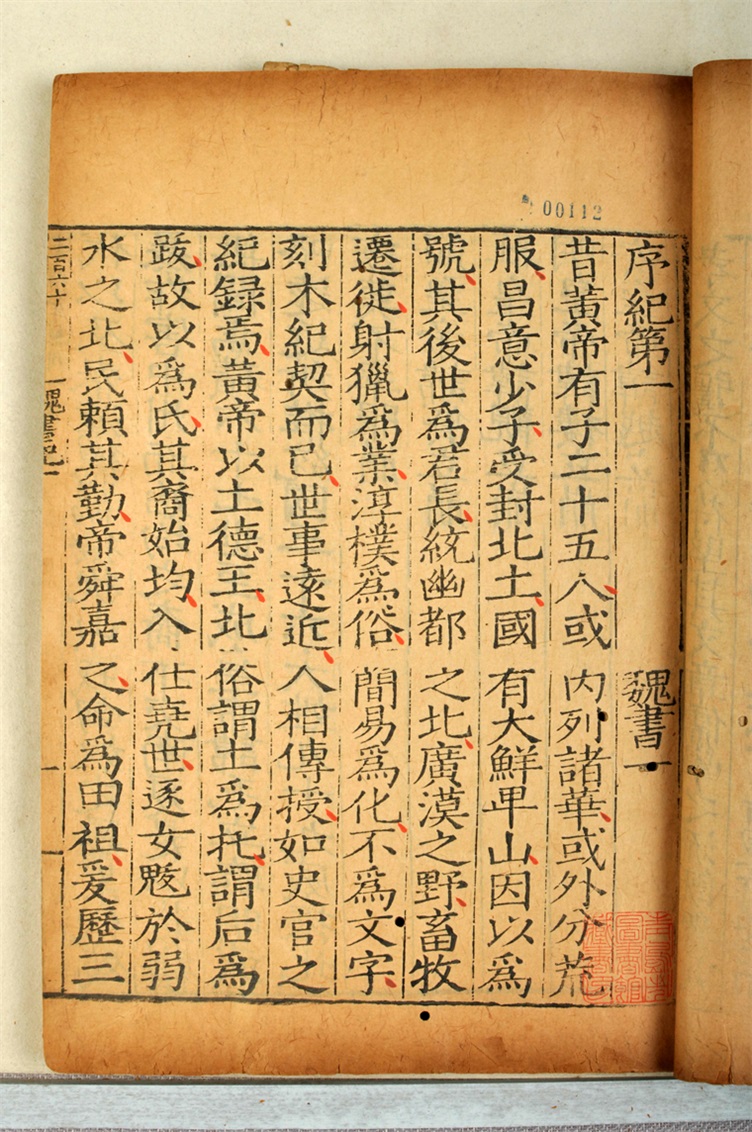 00112
序紀第一 魏書一
昔黃帝有子二十五人或內列諸華或外分荒
服昌意少子受封北土國有大鮮卑山因以為
號其後世為君長統幽都之北廣漠之野畜牧
遷徙射獵為業淳樸為俗簡易為化不為文字
刻木紀契而已世事遠近人相傳授如史官之
紀錄焉黃帝以土德王北俗謂土為托謂后為
跋故以為氏其裔始均入仕堯世逐女魃於弱
水之北民賴其勤帝舜嘉之命為田祖爰歷三
二百六十
魏書紀一